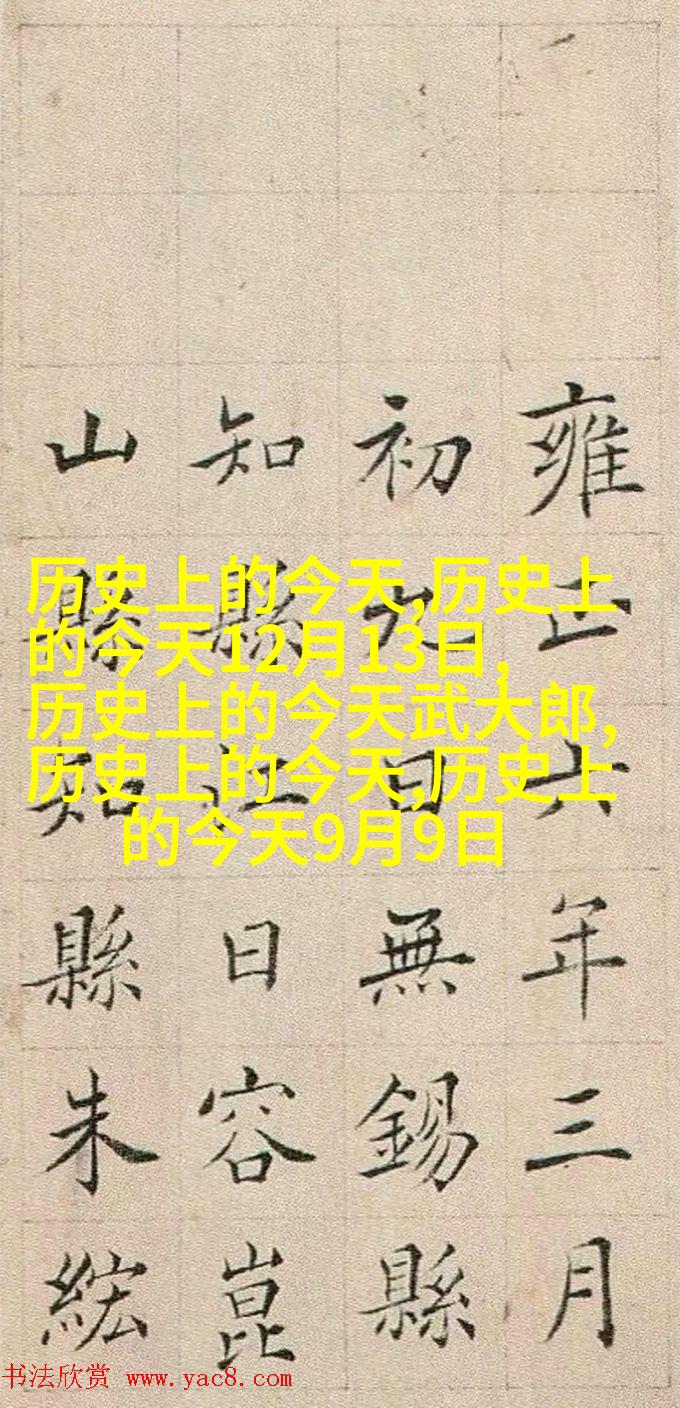 雍正六年三月
初九日無錫縣
知縣江日容崑
山縣知縣朱綋
历史上的今天,历史上
的今天12月13日,
历史上的今天武大郎,
历史上的今天,历史上
的今天9月9日
书法欣赏 www.yac8.com